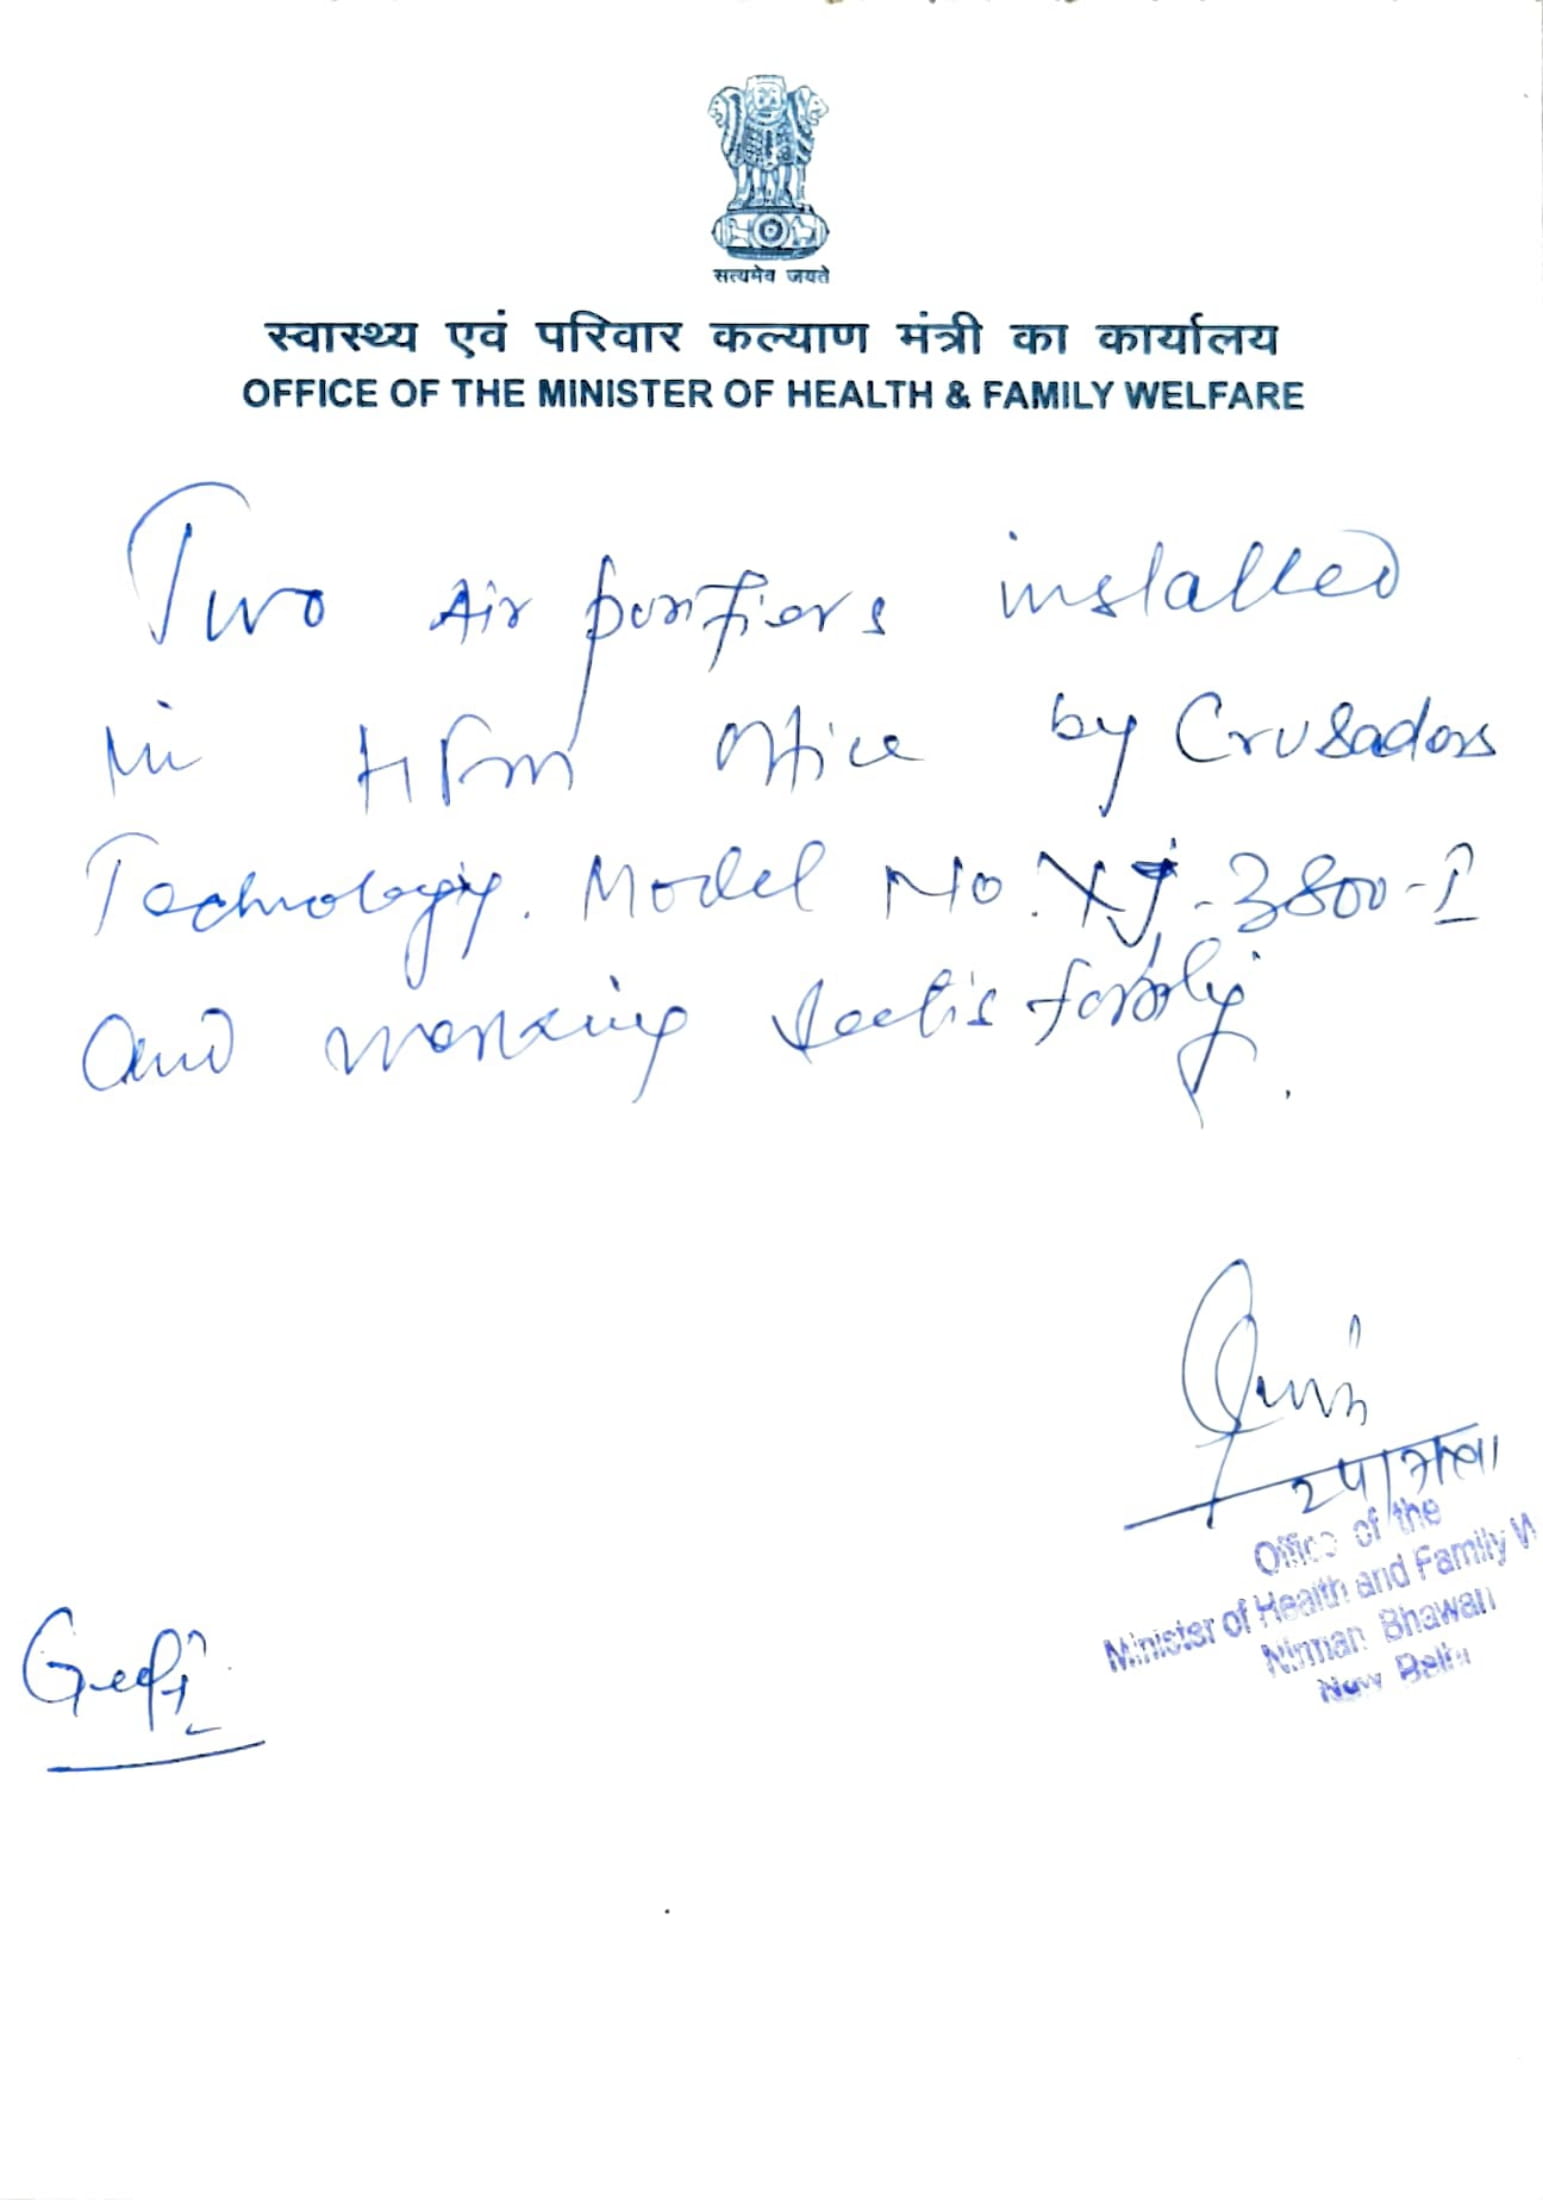 सत्यमेव जयते
स्वास्थ्य एवं परिवार कल्याण मंत्री का कार्यालय
OFFICE OF THE MINISTER OF HEALTH & FAMILY WELFARE
Two Air purifiers installed
in HFM office by Crusaders
Technology. Model No. XJ-3800-I
and working
Office of the
Minister of Health and Family W
Nirman Bhawan
New Delhi